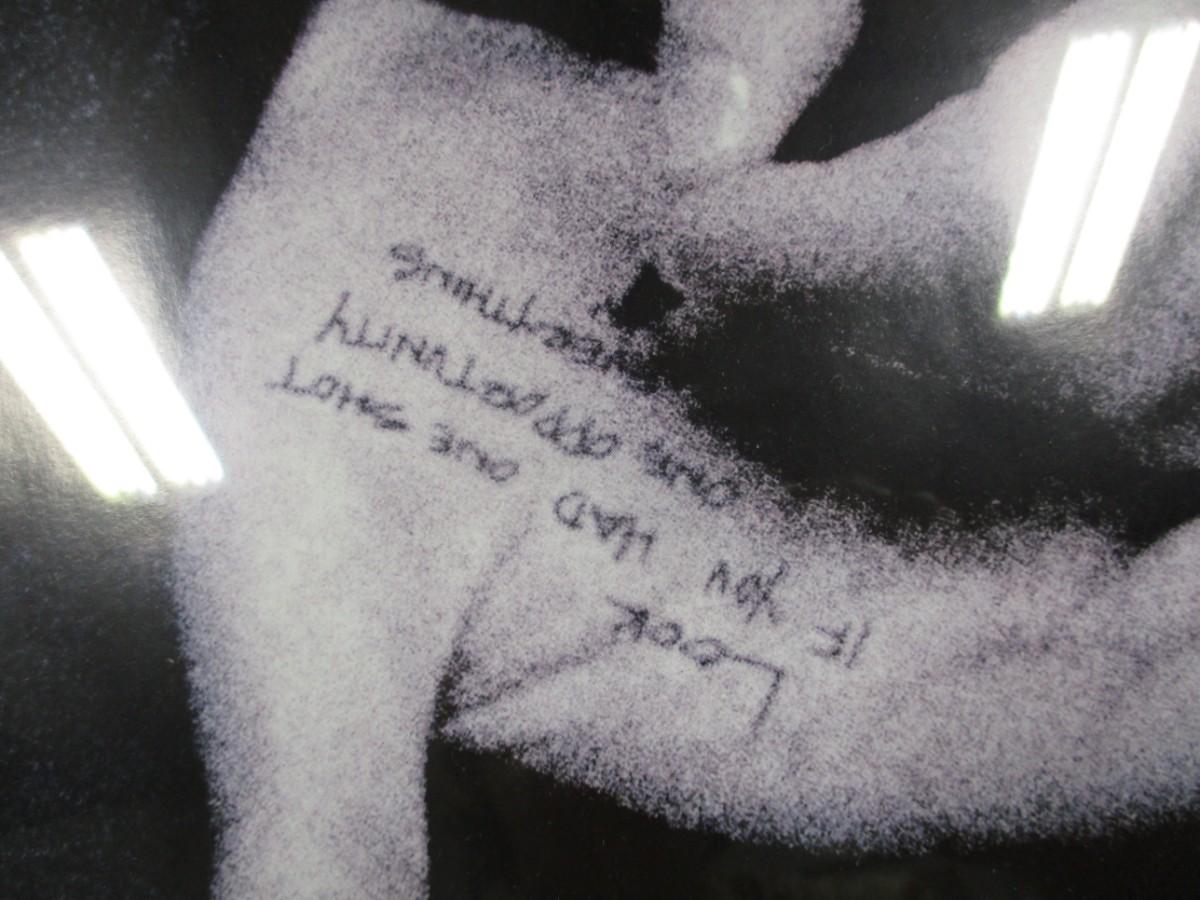 LOOK
IF YOU HAD ONE SHOT
ONE OPPORTUNITY
EVERYTHING